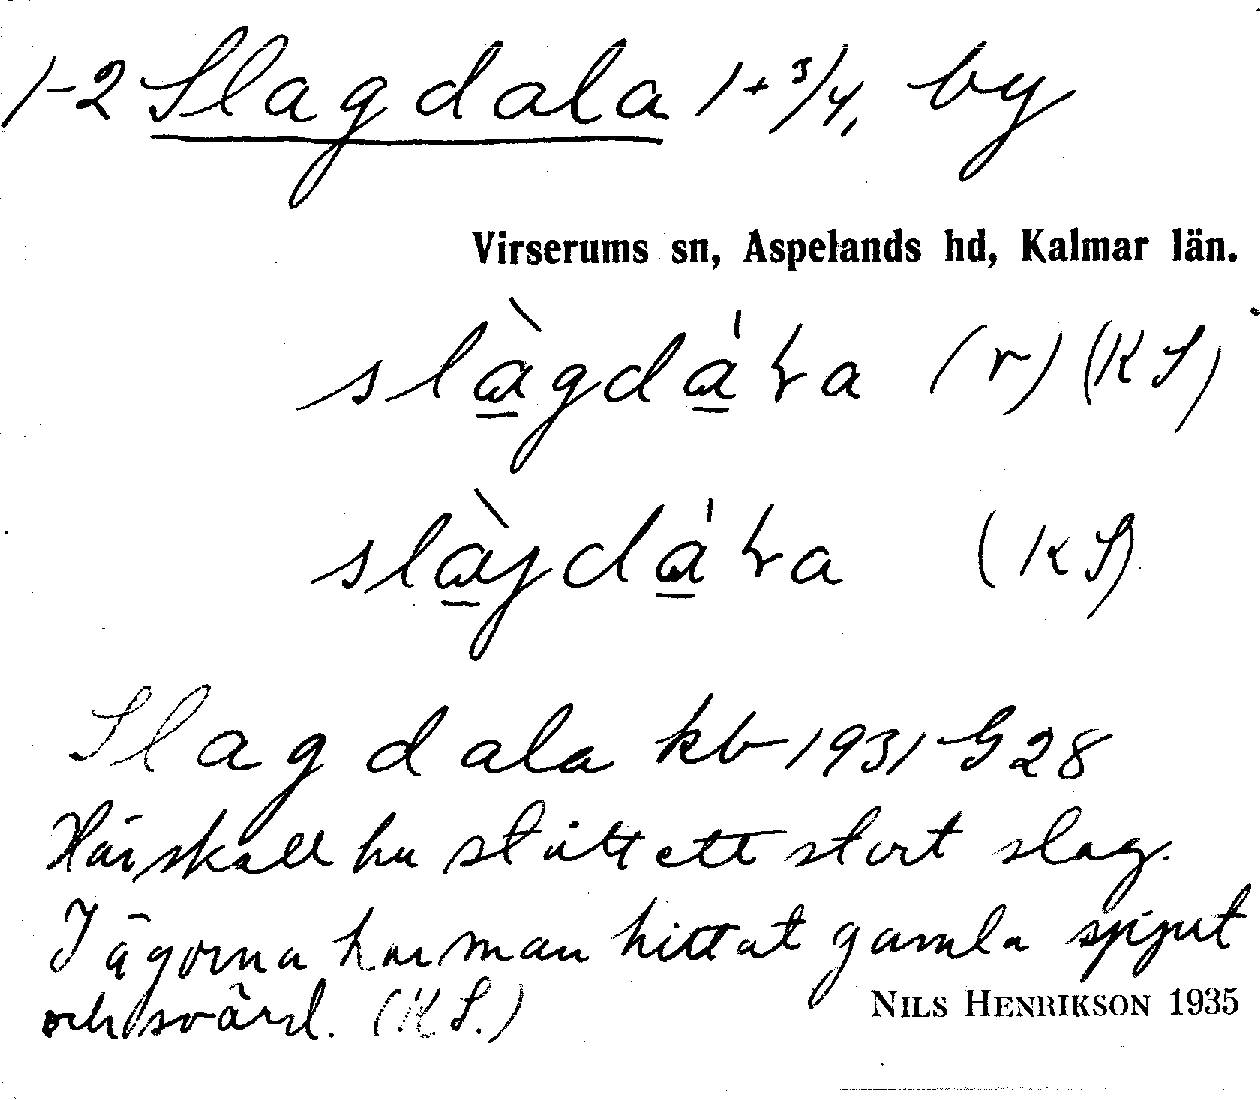 1-2 Slagdala 1+3/4, by
Virserums sn, Aspelands hd, Kalmar län.
slàgdáɽa (r) (KS)
slàjdáɽa (KS)
Slagdala kb 1931 G 28
Här skall ha stått ett stort slag.
I ägorna har man hittat gamla spjut
och svärd. (KS.)
NILS HENRIKSON 1935